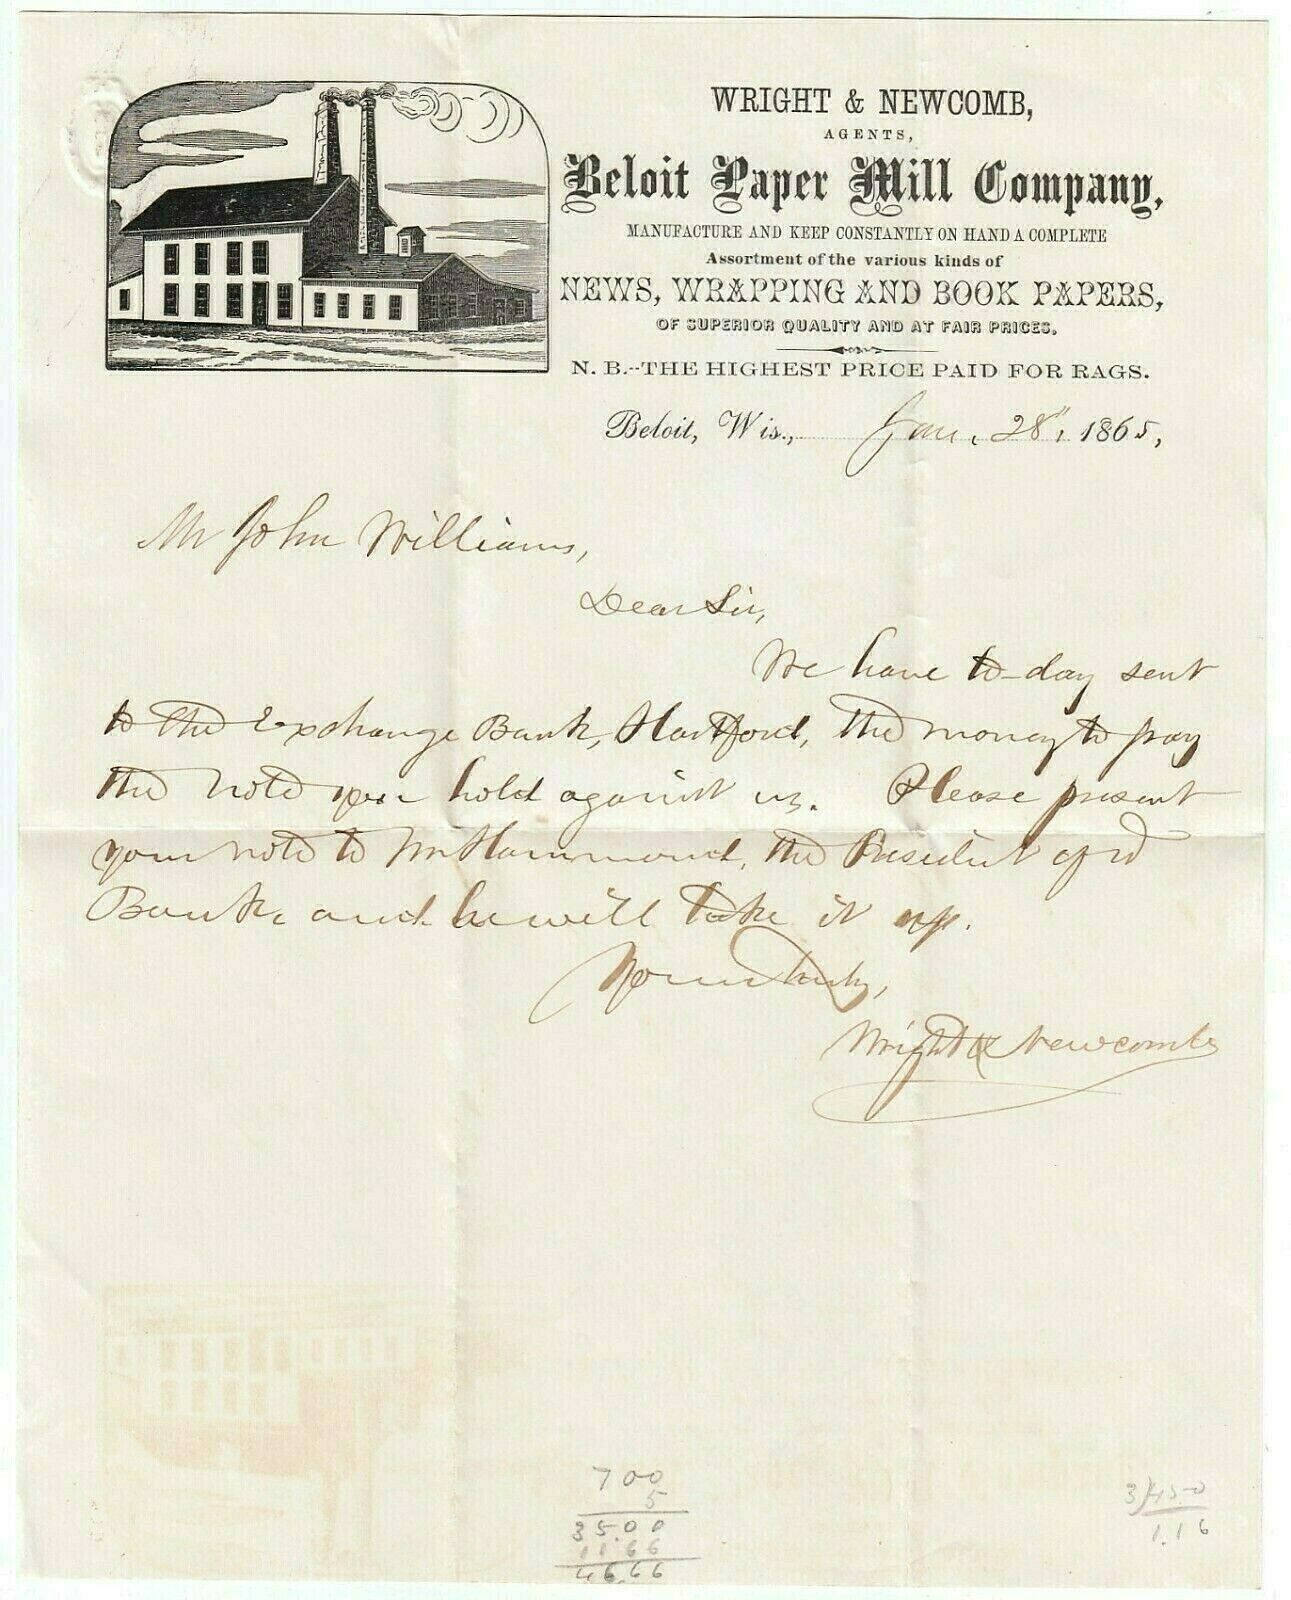 WRIGHT & NEWCOMB,
AGENTS,
Beloit Paper Mill Company,
MANUFACTURE AND KEEP CONSTANTLY ON HAND A COMPLETE
Assortment of the various kinds of
NEWS, WRAPPING AND BOOK PAPERS,
OF SUPERIOR QUALITY AND AT FAIR PRICES.
N. B.--THE HIGHEST PRICE PAID FOR RAGS.
Beloit, Wis., Jan. 28", 1865,
Mr John Williams,
Dear Sir,
We have to-day sent
to the Exchange Bank, Hartford, the money to pay
the note you hold against us. Please present
your note to Mr Hammond, the President of sd
Bank, and he will take it up.
Yours truly,
Wright & Newcomb
700
5
3500
11.66
46.66
3/450
1.16